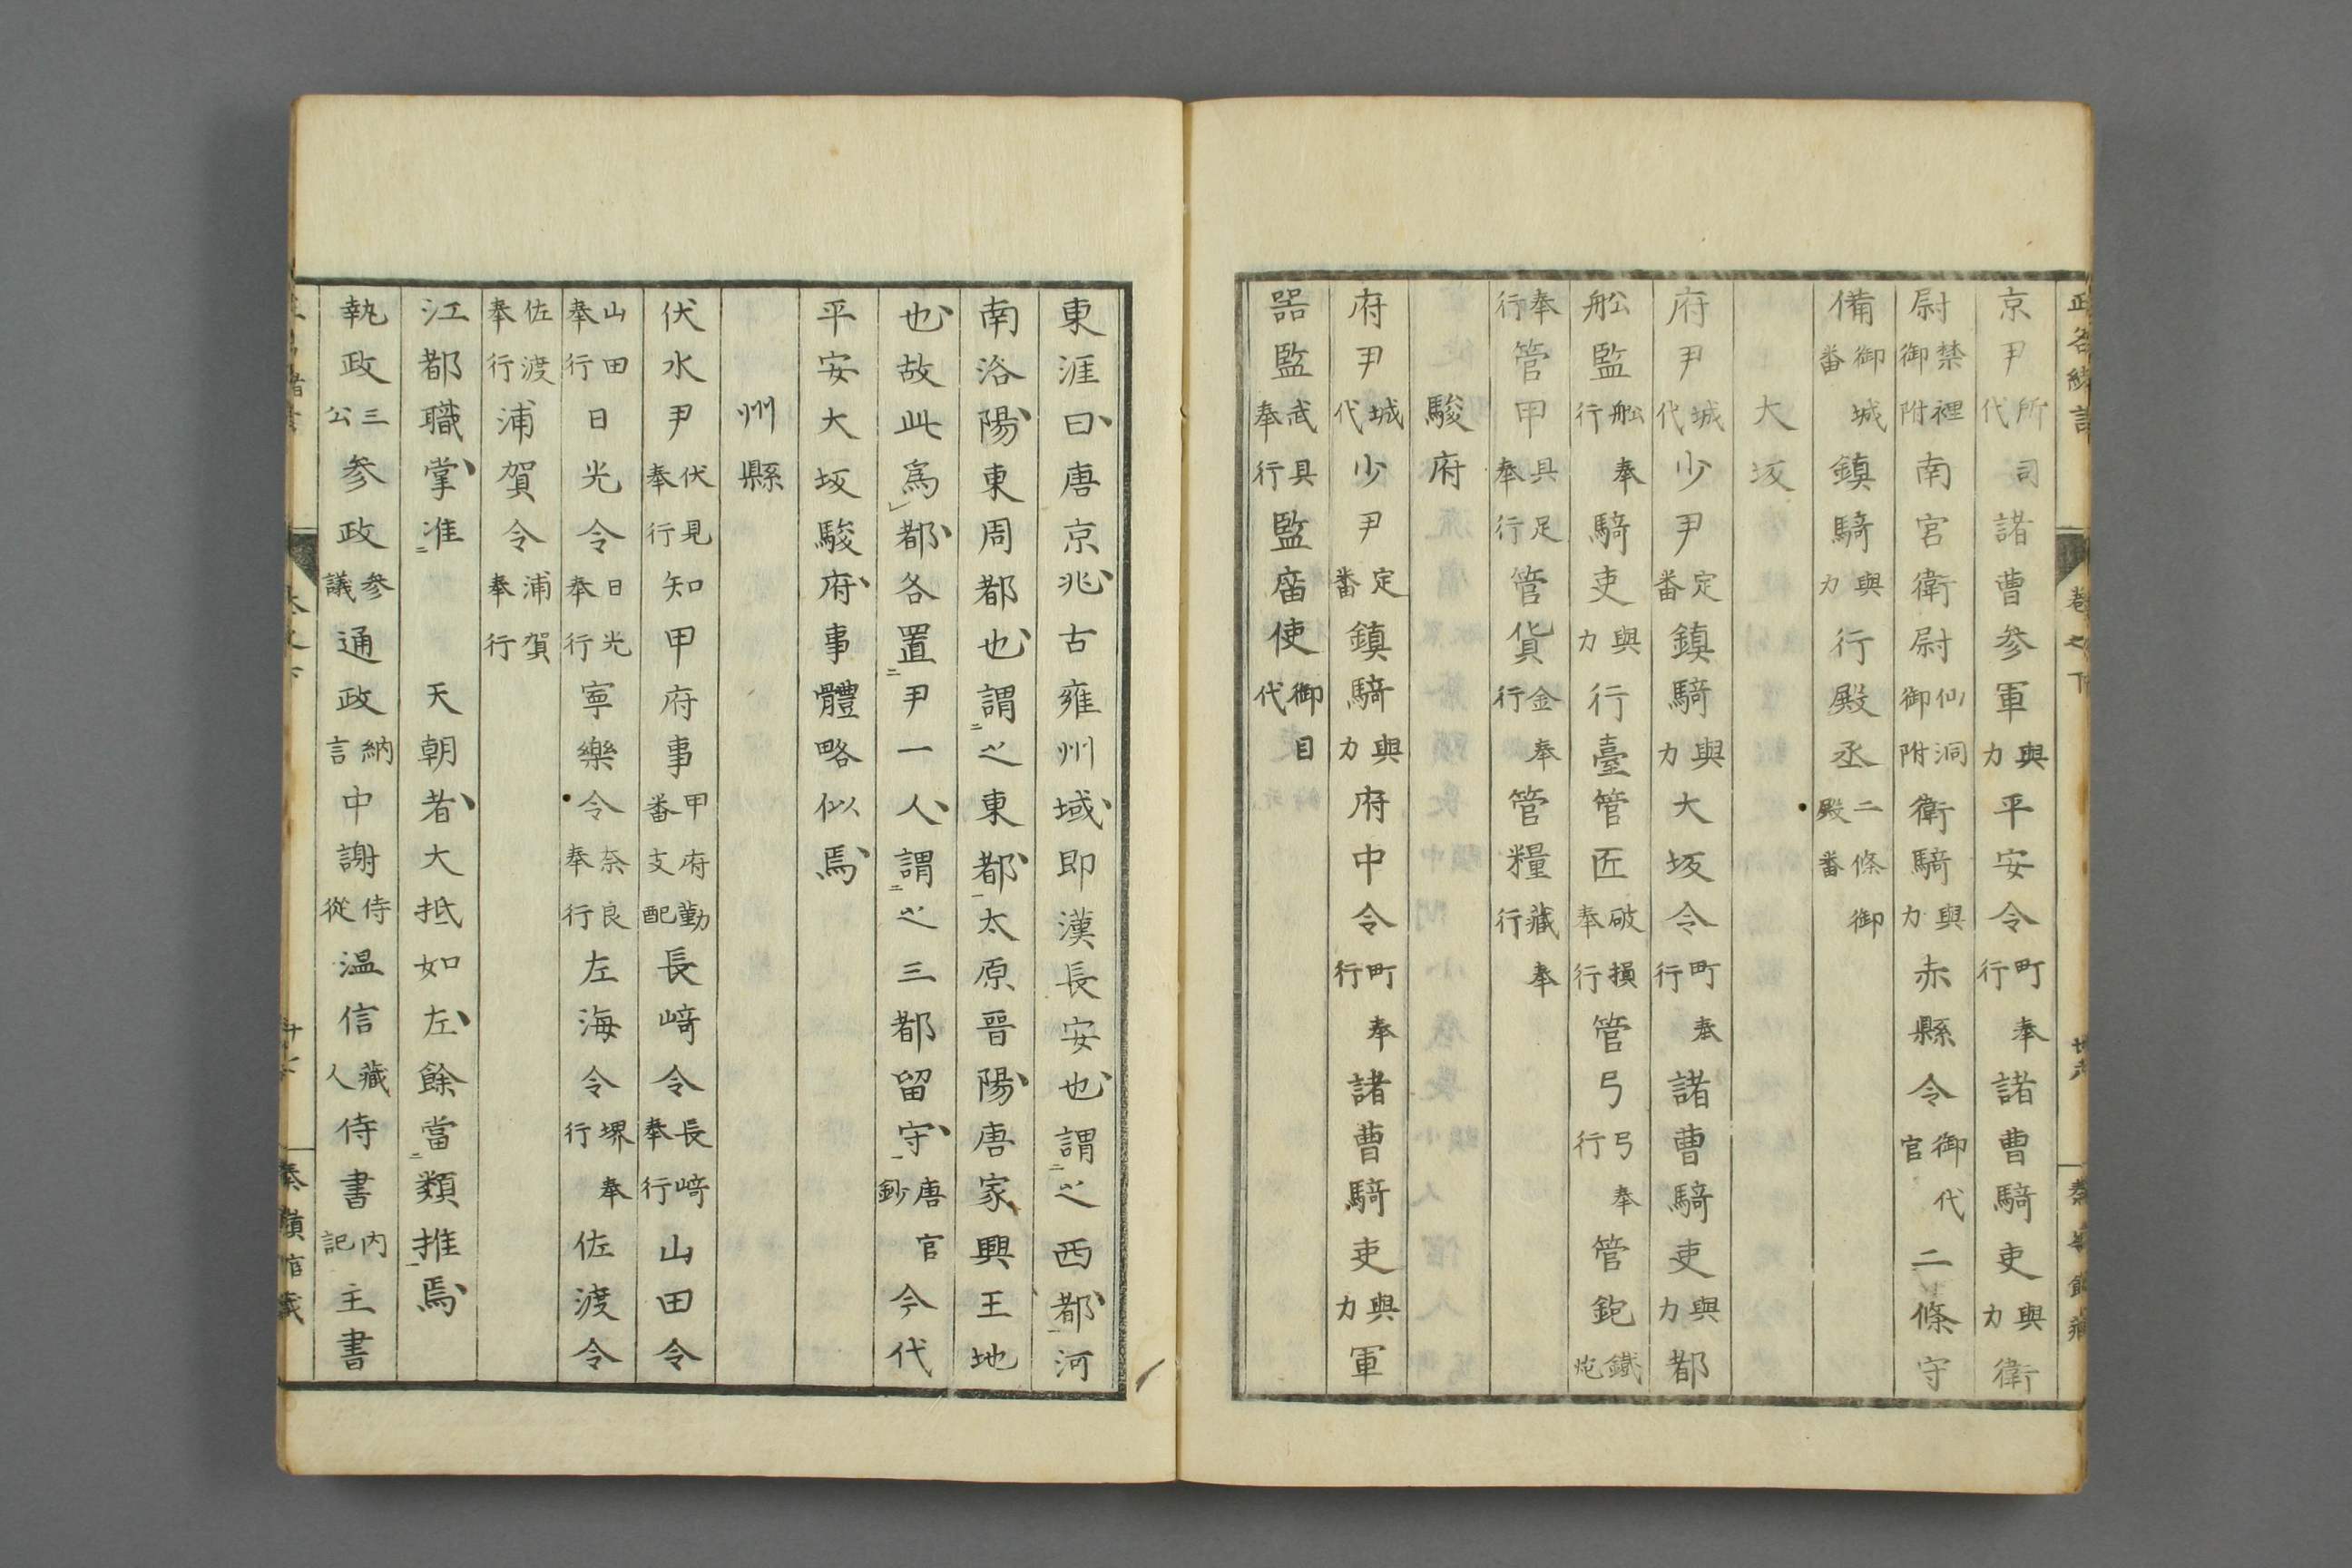 京尹所司代諸曹參軍與力平安令町奉行諸曹騎吏與力衛
尉禁裡御附南宮衛尉仙洞御附衛騎與力赤縣令御代官二條守
備御城番鎮騎與力行殿丞二條御殿番
大坂
府尹城代少尹定番鎮騎與力大坂令町奉行諸曹騎吏與力都
舩監舩奉行騎吏與力行臺管匠破損奉行管弓弓奉行管鉋鐵炮
奉行管甲具足奉行管貨金奉行管糧藏奉行
駿府
府尹城代少尹定番鎮騎與力府中令町奉行諸曹騎吏與力軍
器監武具奉行監廟使御目代
東涯曰唐京兆古雍州域即漢長安也謂之西都河
南洛陽東周都也謂之東都太原晉陽唐家興王地
也故此爲都各置尹一人謂之三都留守唐官鈔今代
平安大坂駿府事體略似焉
州縣
伏水尹伏見奉行知甲府事甲府勤番支配長﨑令長﨑奉行山田令
山田奉行日光令日光奉行寧樂令奈良奉行左海令堺奉行佐渡令
佐渡奉行浦賀令浦賀奉行
江都職掌准天朝者大抵如左餘當類推焉
執政三公参政参議通政納言中謝侍從温信藏人侍書内記主書